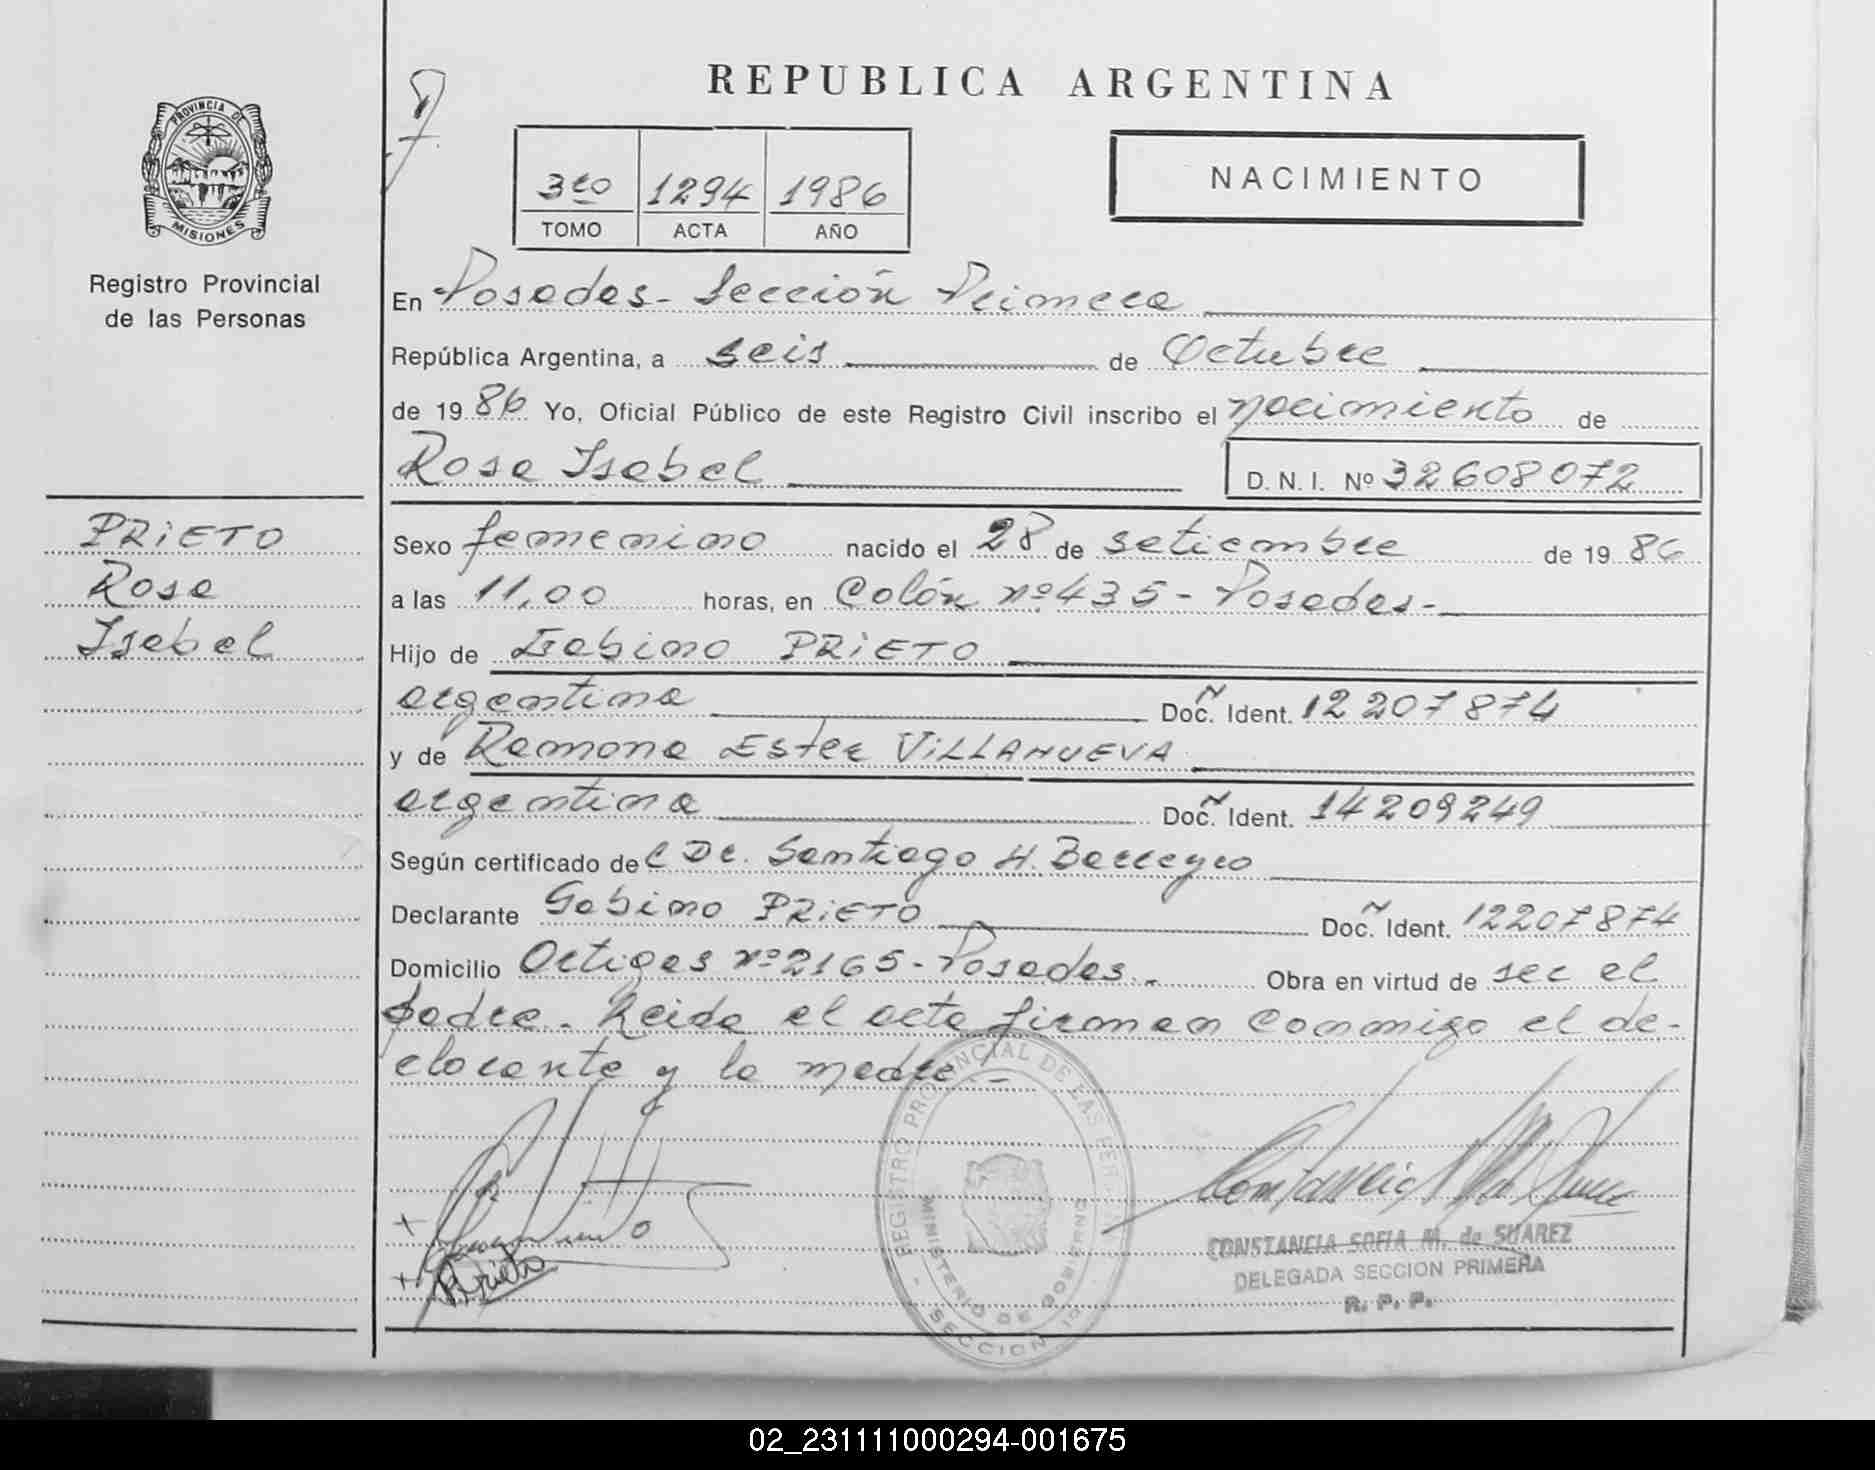 REPUBLICA ARGENTINA
PROVINCIA DE
MISIONES
Registro Provincial
de las Personas
3ro 1294 1986
TOMO ACTA AÑO
NACIMIENTO
En Posadas - Sección Primera
República Argentina, a seis de Octubre
de 1986 Yo, Oficial Público de este Registro Civil inscribo el nacimiento de
Rosa Isabel
D. N. I. Nº 32608072
PRIETO
Rosa
Isabel
Sexo femenino nacido el 28 de setiembre de 1986
a las 11,00 horas, en Colón nº 435 - Posadas -
Hijo de Gabino PRIETO
argentina Doc. Ident. 12207874
y de Ramona Ester VILLANUEVA
argentina Doc. Ident. 14209249
Según certificado del Dr. Santiago H. Barreyro
Declarante Gabino PRIETO Doc. Ident. 12207874
Domicilio Artigas nº 2165 - Posadas.- Obra en virtud de ser el
padre. Leida el acta firman conmigo el de-
clarante y la madre.-
REGISTRO PROVINCIAL DE LAS PER
MINISTERIO DE GOBIERNO
SECCION 1a
Prieto
CONSTANCIA SOFIA M. de SUAREZ
DELEGADA SECCION PRIMERA
R. P. P.
02_231111000294-001675